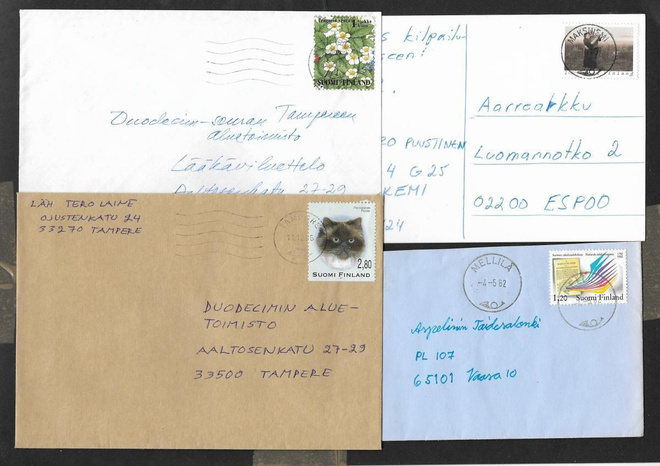 1
SUOMI FINLAND
Duodecim-seuran Tampereen
aluetoimisto
Lääkäriluettelo
Aaltosenkatu 27-29
kilpailu
seen!
RO PUUSTINEN
4 G 25
KEMI
24
Aarrearkku
Luomannotko 2
02200 ESPOO
LÄH TERO LAIME
OJUSTENKATU 24
33270 TAMPERE
2,80
SUOMI FINLAND
DUODECIMIN ALUE-
TOIMISTO
AALTOSENKATU 27-29
33500 TAMPERE
MELLILÄ
-4-5.82
1,20 SUOMI FINLAND
PL 107
65101 Vaasa 10